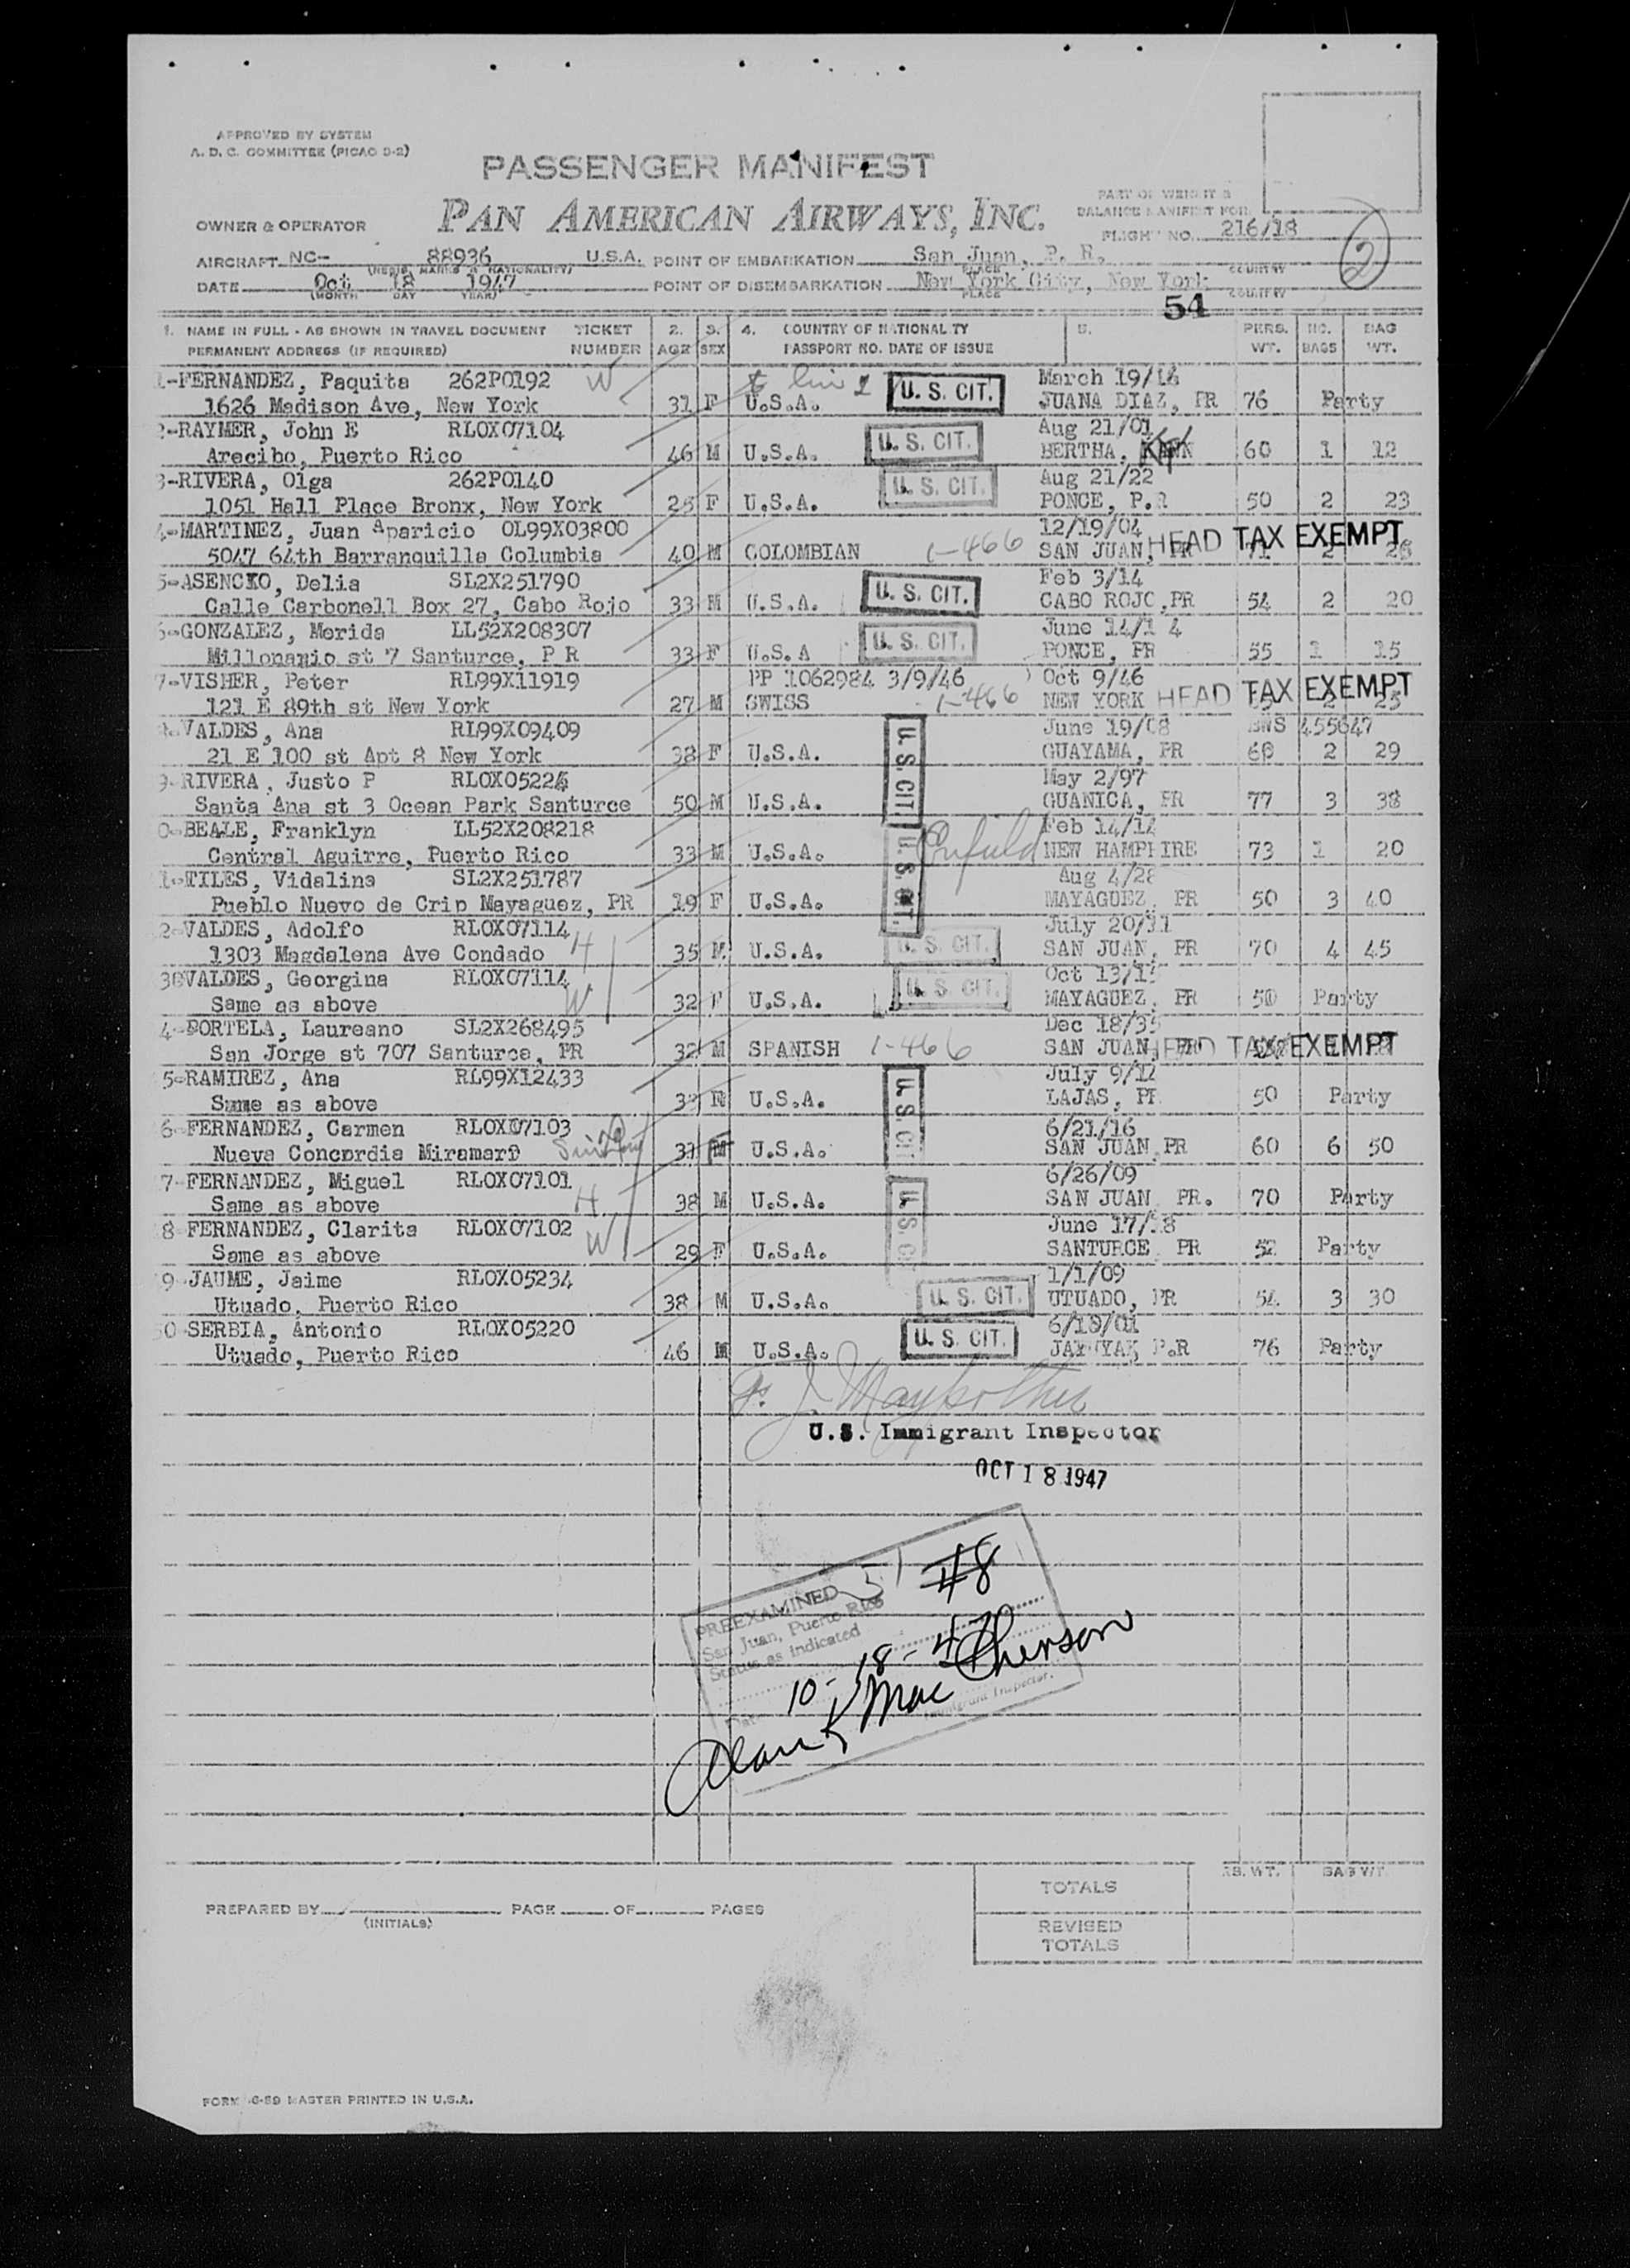 APPROVED BY SYSTEM
A. D. C. COMMITTEE (PICAO D-2)
PASSENGER MANIFEST
PAN AMERICAN AIRWAYS, INC.
PART OF WEIGHT &
BALANCE MANIFEST FOR
FLIGHT NO. 216/18
2
OWNER & OPERATOR
AIRCRAFT NC- 88936 U.S.A. POINT OF EMBARKATION San Juan, P. R.
(REGIS. MARKS & NATIONALITY) PLACE COUNTRY
DATE Oct 18 1947 POINT OF DISEMBARKATION New York City, New York
(MONTH DAY YEAR) PLACE COUNTRY
54
1. NAME IN FULL - AS SHOWN IN TRAVEL DOCUMENT TICKET 2. 3. 4. COUNTRY OF NATIONALITY 5. PERS. NO. BAG
PERMANENT ADDRESS (IF REQUIRED) NUMBER AGE SEX PASSPORT NO. DATE OF ISSUE WT. BAGS WT.
1-FERNANDEZ, Paquita 262P0192 W March 19/16
1626 Madison Ave, New York 31 F U.S.A. U. S. CIT. JUANA DIAZ, PR 76 Party
2-RAYMER, John E RLOX07104 Aug 21/01
Arecibo, Puerto Rico 46 M U.S.A. U. S. CIT. BERTHA, 60 1 12
3-RIVERA, Olga 262P0140 Aug 21/22
1051 Hall Place Bronx, New York 25 F U.S.A. U. S. CIT. PONCE, P.R 50 2 23
4-MARTINEZ, Juan Aparicio OL99X03800 12/19/04
5047 64th Barranquilla Columbia 40 M COLOMBIAN 1-466 SAN JUAN, PR HEAD TAX EXEMPT 71 2
5-ASENCIO, Delia SL2X251790 Feb 3/14
Calle Carbonell Box 27, Cabo Rojo 33 M U.S.A. U. S. CIT. CABO ROJO,PR 54 2 20
6-GONZALEZ, Merida LL52X208307 June 14/1 4
Millonario st 7 Santurce, P R 33 F U.S. A U. S. CIT. PONCE, PR 55 1 15
7-VISHER, Peter RL99X11919 PP 1062984 3/9/46 Oct 9/46
121 E 89th st New York 27 M SWISS 1-466 NEW YORK HEAD TAX EXEMPT 2 25
8-VALDES, Ana RL99X09409 June 19/08 455647
21 E 100 st Apt 8 New York 38 F U.S.A. U. S. CIT. GUAYAMA, PR 60 2 29
9-RIVERA, Justo P RLOX05224 May 2/97
Santa Ana st 3 Ocean Park Santurce 50 M U.S.A. GUANICA, PR 77 3 38
0-BEALE, Franklyn LL52X208218 Enfield Feb 14/14
Central Aguirre, Puerto Rico 33 M U.S.A. U. S. CIT. NEW HAMPHIRE 73 1 20
1-TILES, Vidalina SL2X251787 Aug 4/28
Pueblo Nuevo de Crip Mayaguez, PR 19 F U.S.A. MAYAGUEZ, PR 50 3 40
2-VALDES, Adolfo RLOX07114 H July 20/11
1303 Magdalena Ave Condado 35 M U.S.A. U. S. CIT. SAN JUAN, PR 70 4 45
3-VALDES, Georgina RLOX07114 W Oct 13/15
Same as above 32 F U.S.A. U. S. CIT. MAYAGUEZ, PR 50 Party
4-PORTELA, Laureano SL2X268495 Dec 18/35
San Jorge st 707 Santurce, PR 32 M SPANISH 1-466 SAN JUAN, PR HEAD TAX EXEMPT
5-RAMIREZ, Ana RL99X12433 July 9/14
Same as above 33 U.S.A. U. S. CIT LAJAS, PR 50 Party
6-FERNANDEZ, Carmen RLOX07103 6/21/16
Nueva Concordia Miramar9 31 M U.S.A. SAN JUAN PR 60 6 50
7-FERNANDEZ, Miguel RLOX07101 6/26/09
Same as above H 38 M U.S.A. U. S. CIT SAN JUAN PR. 70 Party
8-FERNANDEZ, Clarita RLOX07102 W June 17/18
Same as above 29 F U.S.A. SANTURCE PR 52 Party
9-JAUME, Jaime RLOX05234 1/1/09
Utuado, Puerto Rico 38 M U.S.A. U. S. CIT. UTUADO, PR 54 3 30
50-SERBIA, Antonio RLOX05220 6/10/01
Utuado, Puerto Rico 46 M U.S.A. U. S. CIT. P.R 76 Party
U.S. Immigrant Inspector
OCT 18 1947
PREEXAMINED 51 48
San Juan, Puerto Rico
Status as indicated
Date 10-18-47
Immigrant Inspector.
Alan K MacPherson
PERS. WT. BAG WT.
TOTALS
PREPARED BY (INITIALS) PAGE OF PAGES
REVISED
TOTALS
FORM G-89 MASTER PRINTED IN U.S.A.